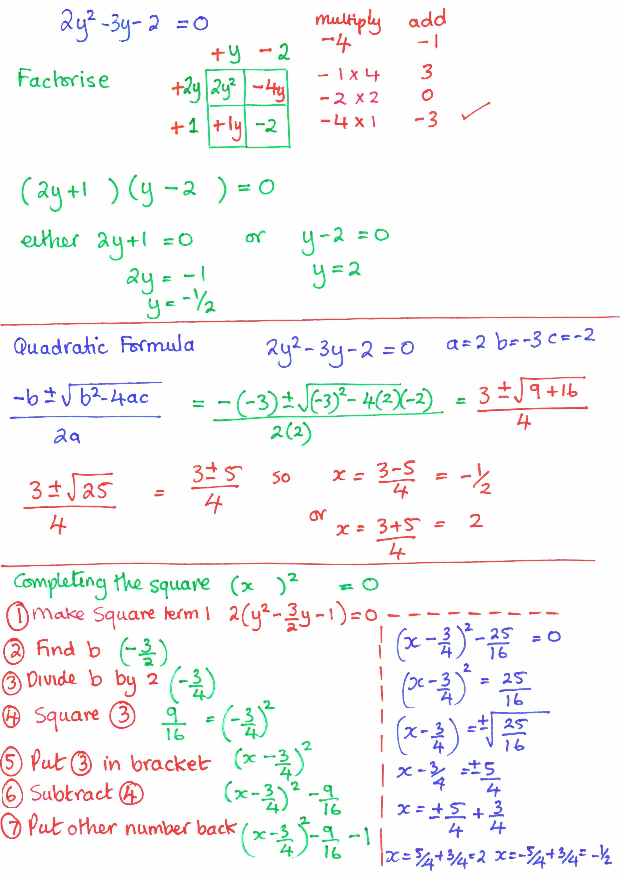 2y² -3y- 2 = 0
multiply add
-4 -1
+y -2
Factorise
+2y 2y² -4y
-1 x 4 3
-2 x 2 0
+1 +1y -2
-4 x 1 -3 ✓
(2y+1 )(y - 2 ) = 0
either 2y+1 = 0 or y-2 = 0
2y = -1 y = 2
y = -1/2
Quadratic Formula 2y² - 3y - 2 = 0 a=2 b=-3 c=-2
(-b ± √(b²-4ac))/2a = (-(-3) ± √((-3)² - 4(2)(-2)))/2(2) = (3 ± √(9+16))/4
(3 ± √25)/4 = (3 ± 5)/4 so x = (3-5)/4 = -1/2
or x = (3+5)/4 = 2
Completing the square (x )² = 0
① Make Square term 1 2(y² - 3/2y - 1) = 0
② Find b (-3/2)
③ Divide b by 2 (-3/4)
④ Square ③ 9/16 = (-3/4)²
⑤ Put ③ in bracket (x - 3/4)²
⑥ Subtract ④ (x - 3/4)² - 9/16
⑦ Put other number back (x - 3/4)² - 9/16 - 1
(x - 3/4)² - 25/16 = 0
(x - 3/4)² = 25/16
(x - 3/4) = ±√(25/16)
x - 3/4 = ±5/4
x = ±5/4 + 3/4
x = 5/4 + 3/4 = 2 x = -5/4 + 3/4 = -1/2